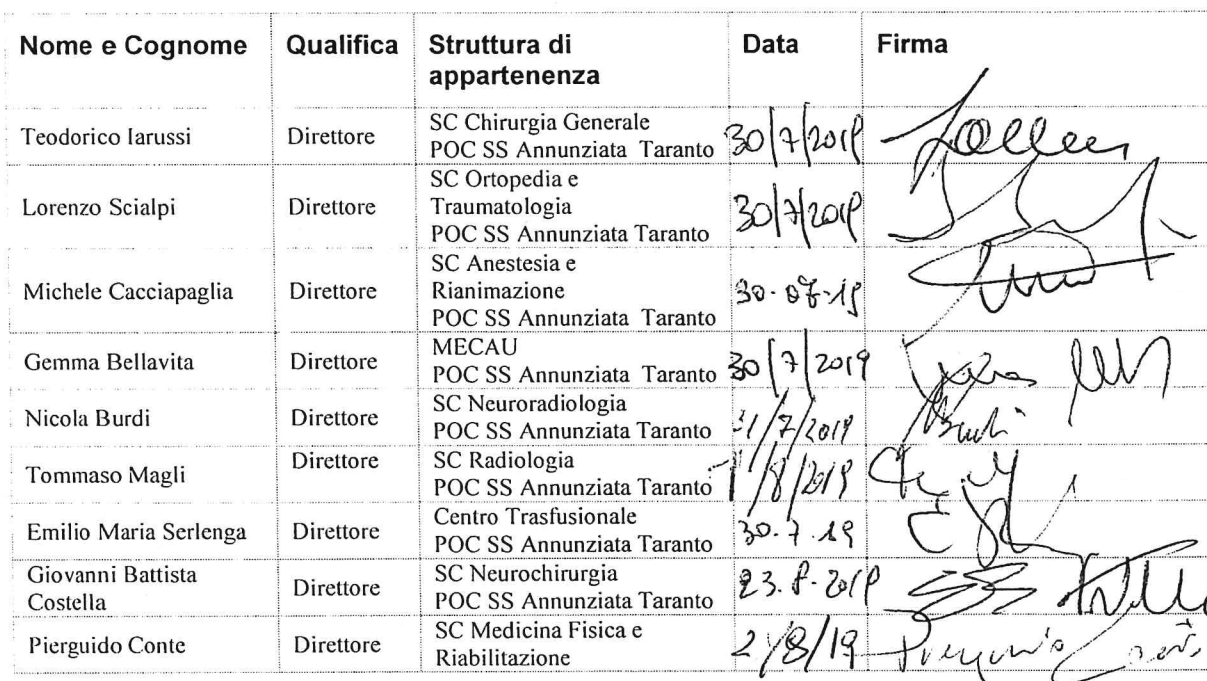 Nome e Cognome Qualifica Struttura di appartenenza Data Firma
Teodorico Iarussi Direttore SC Chirurgia Generale
POC SS Annunziata Taranto 30/7/2019
Lorenzo Scialpi Direttore SC Ortopedia e
Traumatologia
POC SS Annunziata Taranto 30/7/2019
Michele Cacciapaglia Direttore SC Anestesia e
Rianimazione
POC SS Annunziata Taranto 30-07-19
Gemma Bellavita Direttore MECAU
POC SS Annunziata Taranto 30/7/2019
Nicola Burdi Direttore SC Neuroradiologia
POC SS Annunziata Taranto 31/7/2019 Burdi
Tommaso Magli Direttore SC Radiologia
POC SS Annunziata Taranto 1/8/2019
Emilio Maria Serlenga Direttore Centro Trasfusionale
POC SS Annunziata Taranto 30.7.19
Giovanni Battista
Costella Direttore SC Neurochirurgia
POC SS Annunziata Taranto 23.8.2019
Pierguido Conte Direttore SC Medicina Fisica e
Riabilitazione 2/8/19